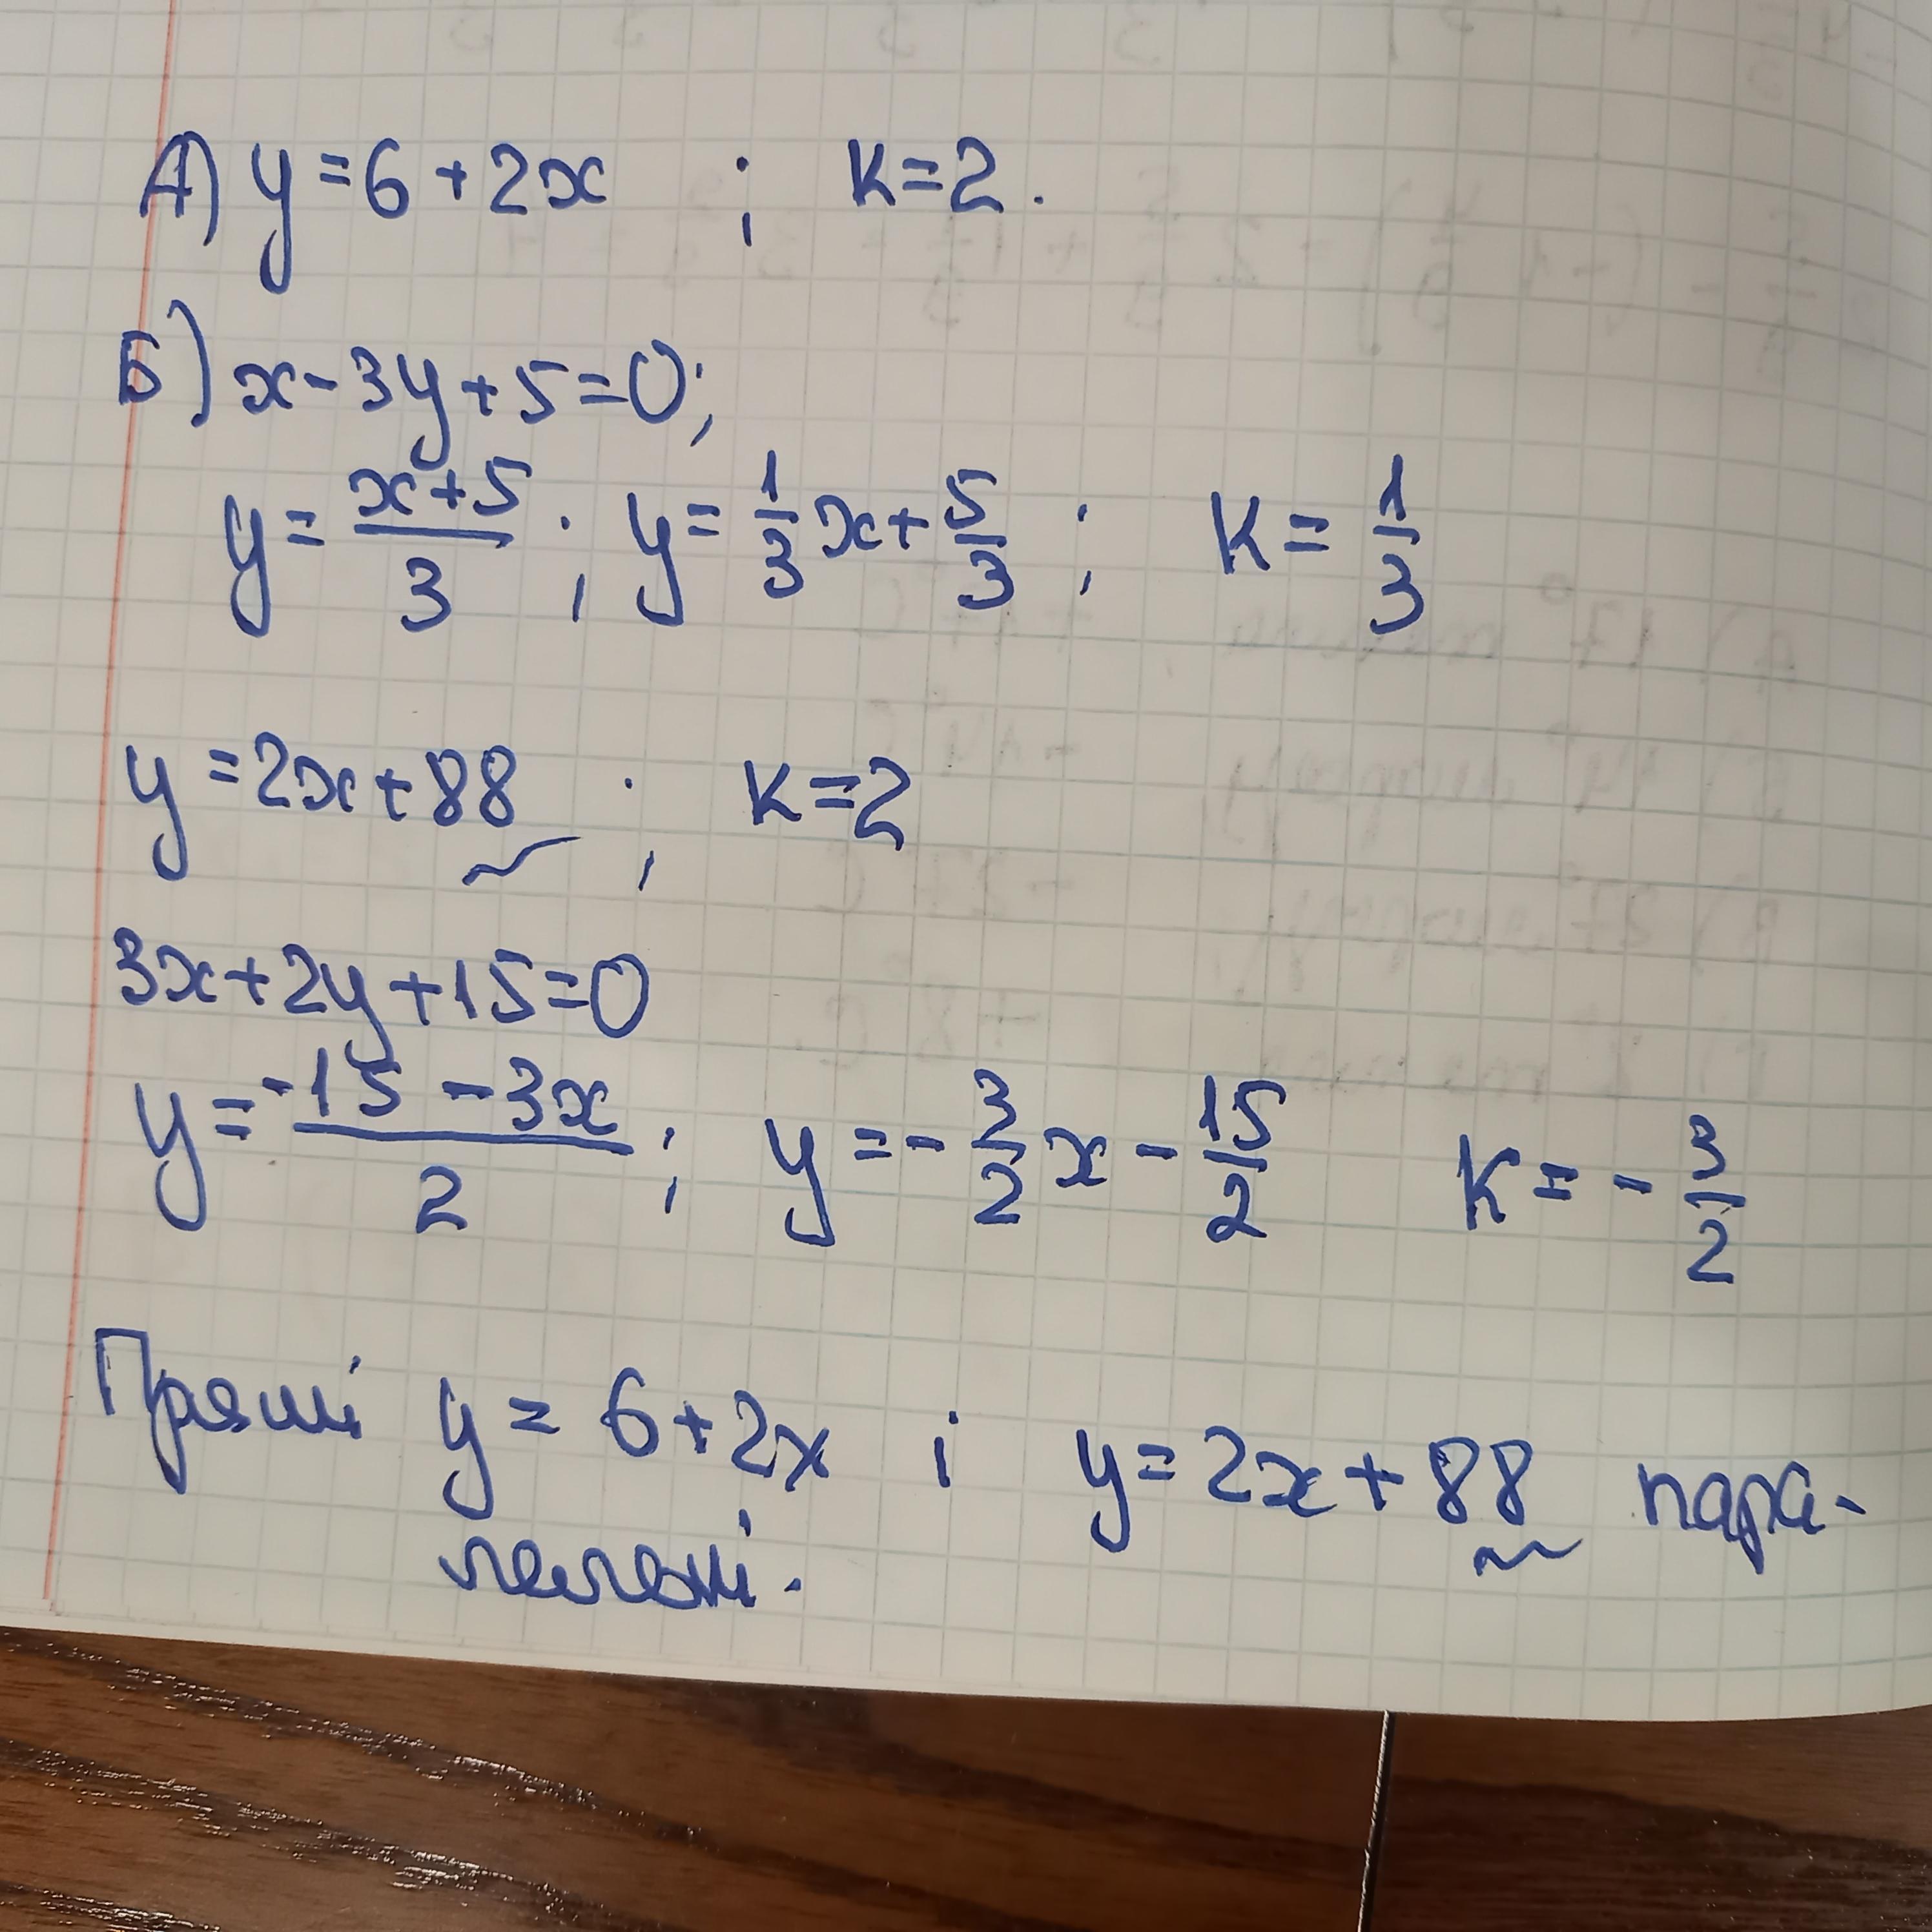 А) y = 6 + 2x ; k = 2.
Б) x - 3y + 5 = 0;
y = (x + 5)/3 ; y = 1/3 x + 5/3 ; k = 1/3
y = 2x + 88 ; k = 2
3x + 2y + 15 = 0
y = (-15 - 3x)/2 ; y = - 3/2 x - 15/2 k = - 3/2
Прямі y = 6 + 2x і y = 2x + 88 пара-
лельні.